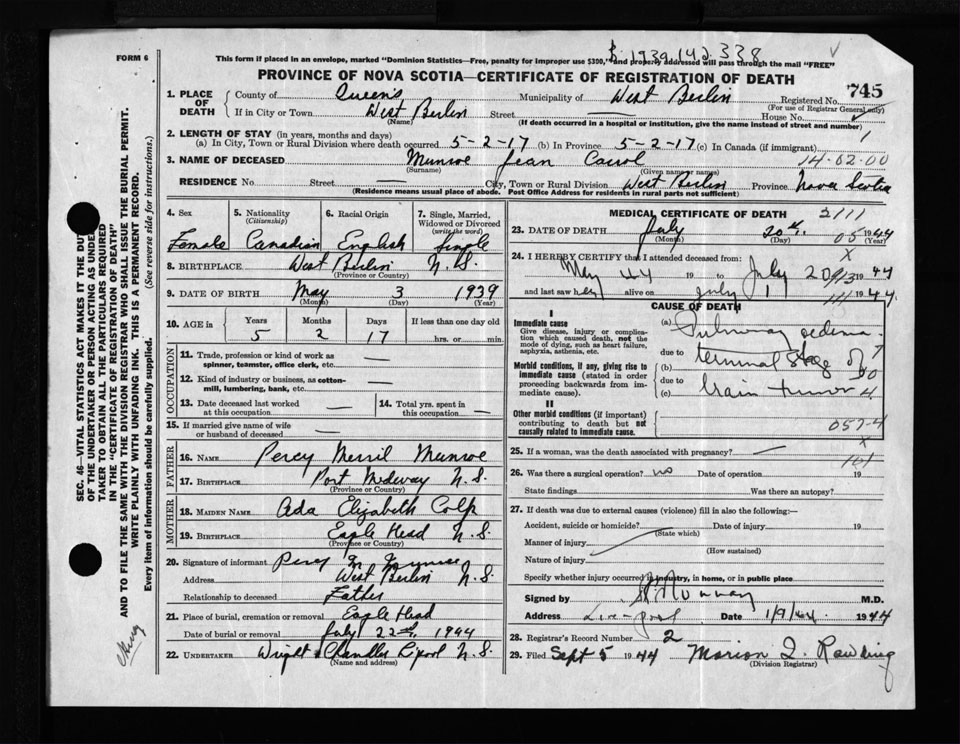 FORM 6
B 1939 142 338
This form if placed in an envelope, marked "Dominion Statistics—Free, penalty for improper use $300," and properly addressed will pass through the mail "FREE"
PROVINCE OF NOVA SCOTIA—CERTIFICATE OF REGISTRATION OF DEATH
745
1. PLACE OF DEATH
County of Queens Municipality of West Berlin Registered No.
(For use of Registrar General only)
If in City or Town West Berlin Street — House No.
(Name) (If death occurred in a hospital or institution, give the name instead of street and number)
2. LENGTH OF STAY (in years, months and days)
(a) In City, Town or Rural Division where death occurred 5-2-17 (b) In Province 5-2-17 (c) In Canada (if immigrant)
3. NAME OF DECEASED Munroe Jean Carrol 14-02-00
(Surname) (Given name or names)
RESIDENCE No. Street — City, Town or Rural Division West Berlin Province Nova Scotia
(Residence means usual place of abode. Post Office Address for residents in rural parts not sufficient)
4. Sex
Female
5. Nationality
(Citizenship)
Canadian
6. Racial Origin
English
7. Single, Married, Widowed or Divorced
(write the word)
Single
8. BIRTHPLACE West Berlin N.S.
(Province or Country)
9. DATE OF BIRTH May 3 1939
(Month) (Day) (Year)
10. AGE in
Years Months Days If less than one day old
5 2 17 hrs. or min.
OCCUPATION
11. Trade, profession or kind of work as spinner, teamster, office clerk, etc. —
12. Kind of industry or business, as cotton-mill, lumbering, bank, etc. —
13. Date deceased last worked at this occupation —
14. Total yrs. spent in this occupation —
15. If married give name of wife or husband of deceased —
FATHER
16. NAME Percy Merril Munroe
17. BIRTHPLACE Port Medway N.S.
(Province or Country)
MOTHER
18. MAIDEN NAME Ada Elizabeth Colp
19. BIRTHPLACE Eagle Head N.S.
(Province or Country)
20. Signature of informant Percy M Munroe
Address West Berlin N.S.
Relationship to deceased Father
21. Place of burial, cremation or removal Eagle Head
Date of burial or removal July 22nd, 1944
22. UNDERTAKER Wright & Chandler L'pool N.S.
(Name and address)
MEDICAL CERTIFICATE OF DEATH 2111
23. DATE OF DEATH July 20th 05 1944
(Month) (Day) (Year)
24. I HEREBY CERTIFY that I attended deceased from:
May 44 19 to July 20 1944
and last saw her alive on July 1 1944.
CAUSE OF DEATH
I
Immediate cause
Give disease, injury or complication which caused death, not the mode of dying, such as heart failure, asphyxia, asthenia, etc.
(a) Pulmonary oedema
due to
Morbid conditions, if any, giving rise to immediate cause (stated in order proceeding backwards from immediate cause).
(b) terminal stage of
due to
(c) brain tumor
II
Other morbid conditions (if important) contributing to death but not causally related to immediate cause.
057-4
25. If a woman, was the death associated with pregnancy? —
26. Was there a surgical operation? no Date of operation 19
State findings Was there an autopsy?
27. If death was due to external causes (violence) fill in also the following:—
Accident, suicide or homicide? Date of injury 19
(State which)
Manner of injury
(How sustained)
Nature of injury
Specify whether injury occurred in industry, in home, or in public place
Signed by M.D.
Address Date 1/9/44 1944
28. Registrar's Record Number 2
29. Filed Sept 5 1944 Marion I. Rawding
(Division Registrar)
SEC. 46—VITAL STATISTICS ACT MAKES IT THE DUTY
OF THE UNDERTAKER OR PERSON ACTING AS UNDER-
TAKER TO OBTAIN ALL THE PARTICULARS REQUIRED
IN THE "CERTIFICATE OF REGISTRATION OF DEATH"
AND TO FILE THE SAME WITH THE DIVISION REGISTRAR WHO SHALL ISSUE THE BURIAL PERMIT.
WRITE PLAINLY WITH UNFADING INK. THIS IS A PERMANENT RECORD.
Every item of information should be carefully supplied. (See reverse side for instructions.)